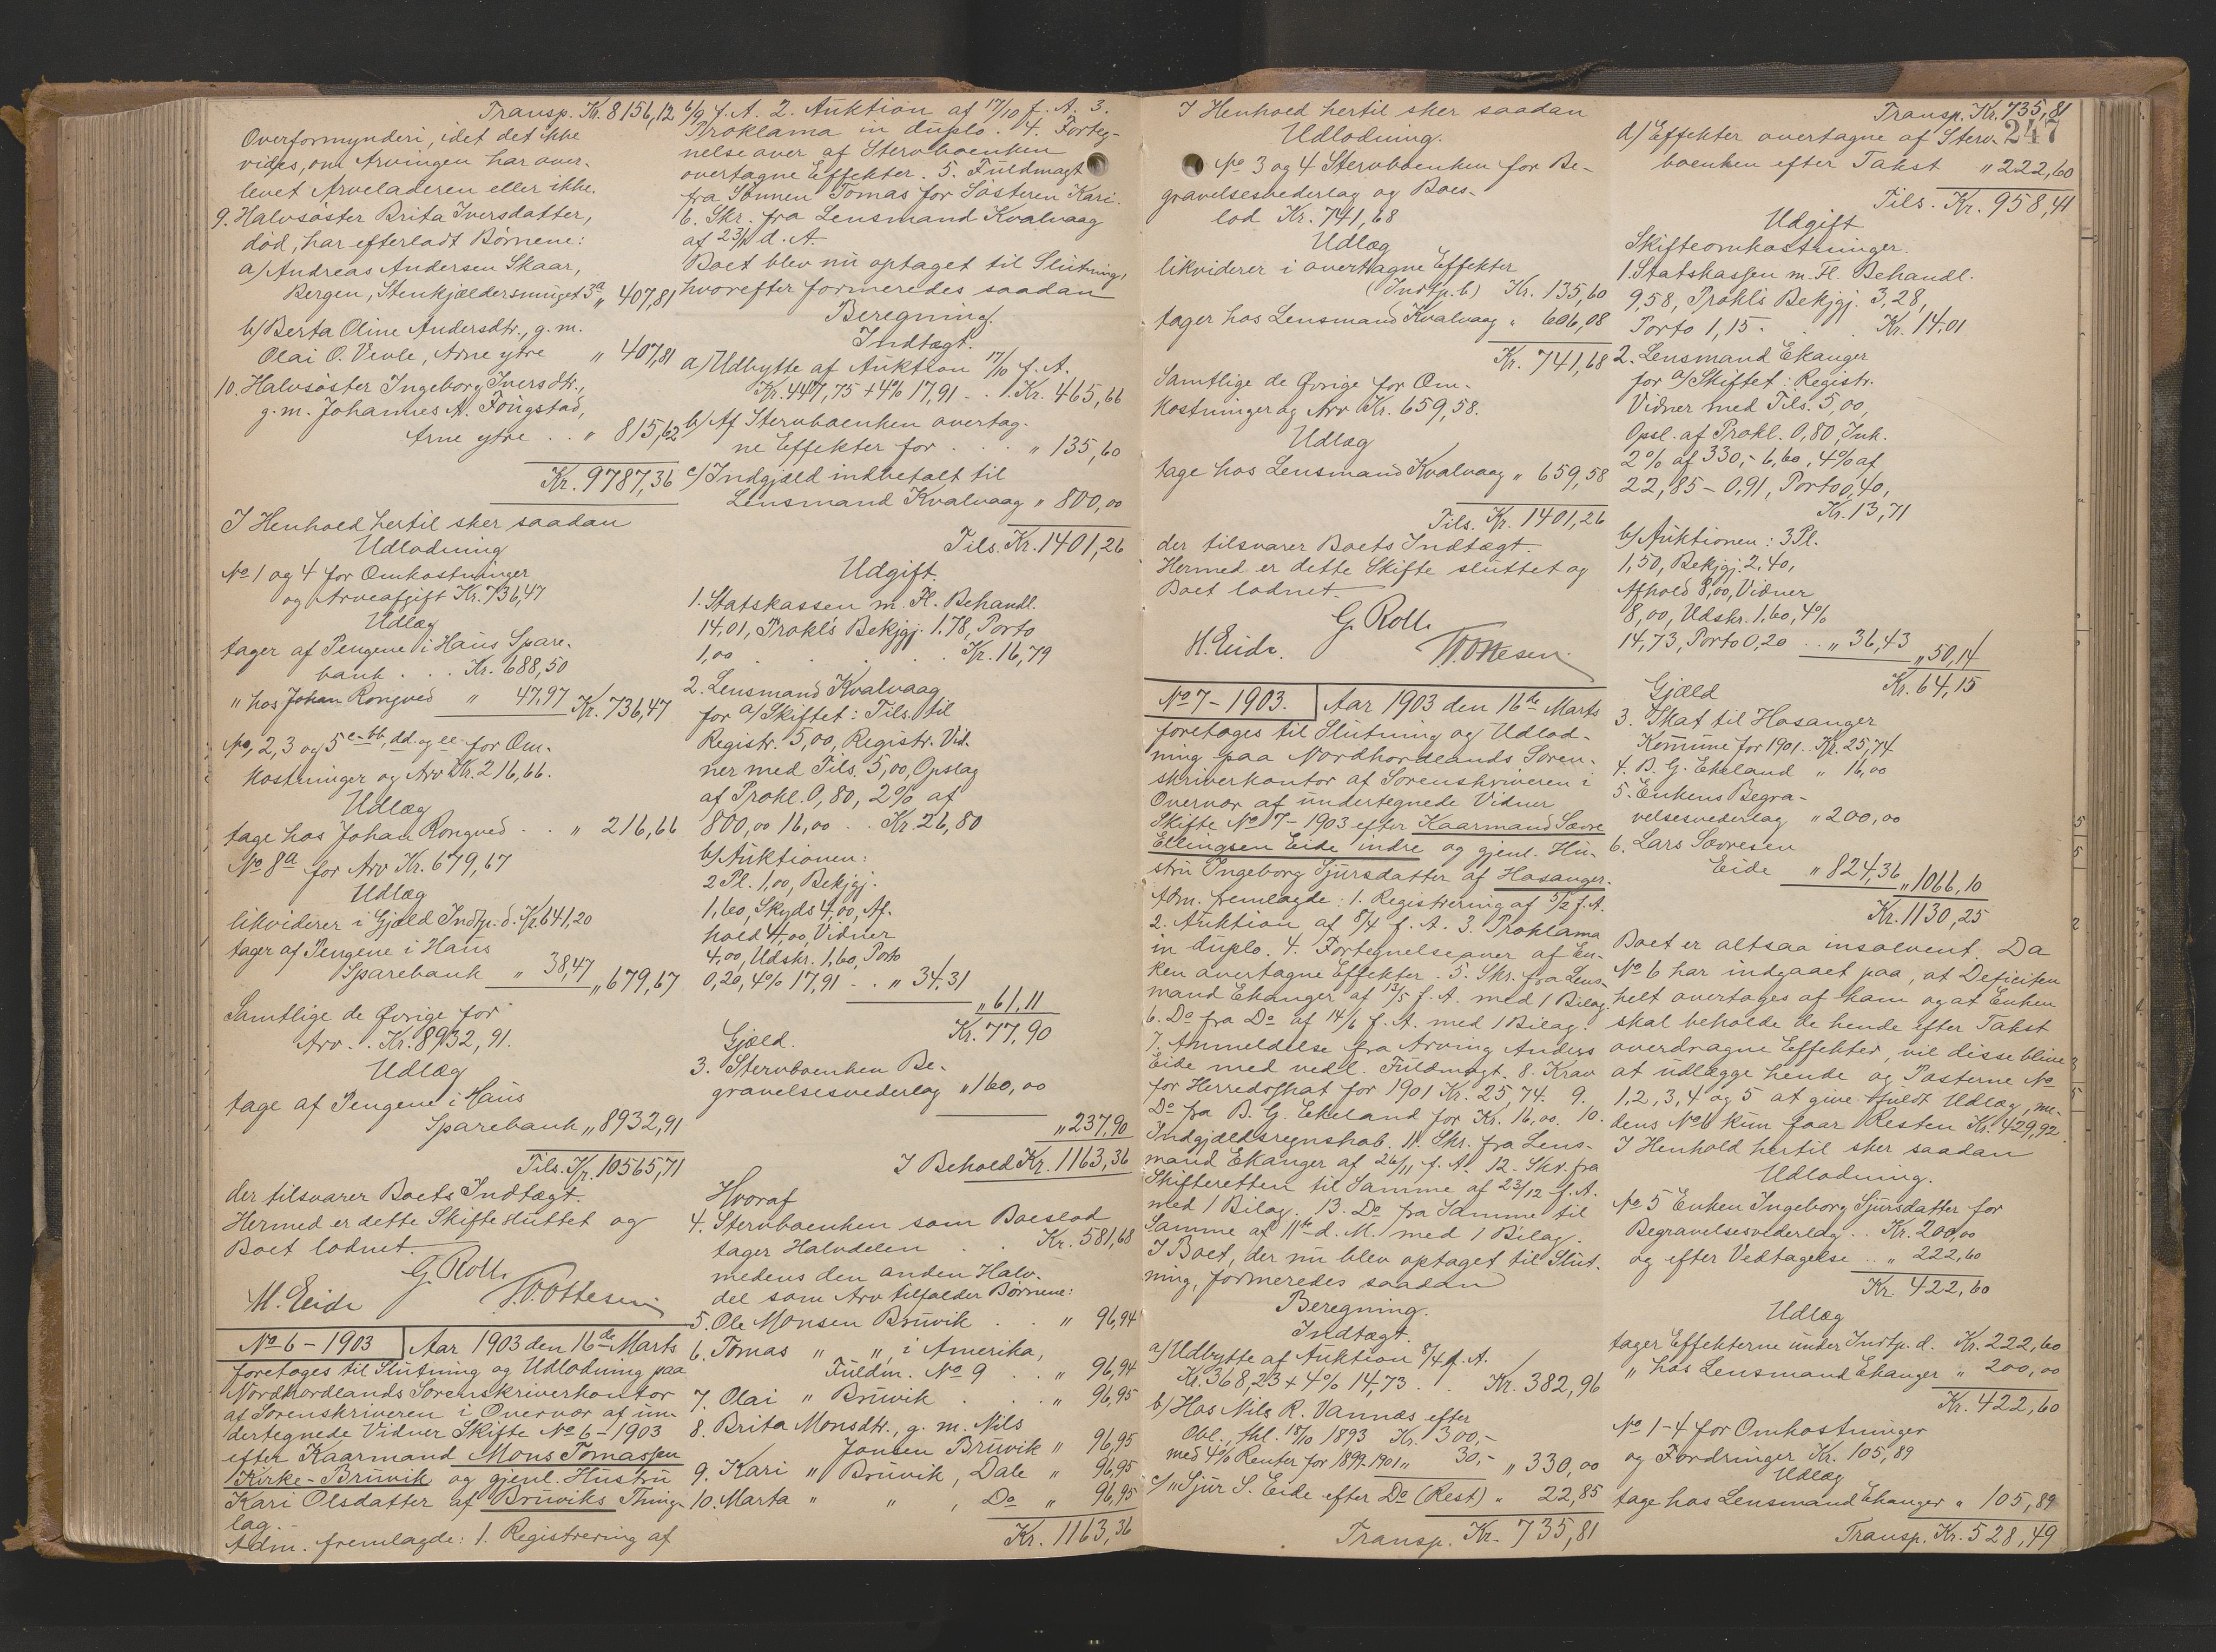 Transp. Kr. 8156,12
Overformynderi, idet det ikke
vides, om Arvingen har over-
levet Arveladeren eller ikke.
9. Halvsöster Brita Iversdatter,
död, har efterladt Börnene:
a/ Andreas Andersen Skaar,
Bergen, Stenkjældersmuget 3a " 407,81
b/ Berta Oline Andersdtr., g. m.
Olai O. Vevle, Arne ytre " 407,81
10. Halvsöster Ingeborg Iversdtr.,
g. m. Johannes N. Fougstad,
Arne ytre . . " 815,62
Kr. 9787,36
I Henhold hertil sker saadan
Udlodning
No 1 og 4 for Omkostninger
og Arveafgift Kr. 736,47
Udlæg
tager af Pengene i Haus Spare-
bank . . . Kr. 688,50
" hos Johan Rongved " 47,97 Kr. 736,47
No, 2, 3 og 5 c-bb, dd. og ee. for Om-
kostninger og Arv Kr. 216,66.
Udlæg
tage hos Johan Rongved . . " 216,66
No 8a for Arv Kr. 679,67
Udlæg
likviderer i Gjæld Indtp. d. Kr. 641,20
tager af Pengene i Haus
Sparebank " 38,47 " 679,67
Samtlige de Øvrige for
Arv . . Kr. 8932,91.
Udlæg
tage af Pengene i Haus
Sparebank " 8932,91
Tils. Kr. 10565,71
der tilsvarer Boets Indtægt.
Hermed er dette Skifte sluttet og
Boet lodnet.
G. Roll.
M. Eide
W. Ottesen
No 6 - 1903 Aar 1903 den 16de Marts
foretoges til Slutning og Udlodning paa
Nordhordlands Sorenskriverkontor
af Sorenskriveren i Overvær af un-
dertegnede Vidner Skifte No 6 - 1903
efter Kaarmand Mons Tomassen
Kirke-Bruvik og gjenl. Hustru
Kari Olsdatter af Bruviks Thing-
lag.
Adm. fremlagde: 1. Registrering af
6/9 f. A. 2. Auktion af 17/10 f. A. 3.
Proklama in duplo. 4. Forteg-
nelse over af Stervboenken
overtagne Effekter. 5. Fuldmagt
fra Sönnen Tomas for Sösteren Kari.
6. Skr. fra Lensmand Kvalvaag
af 23/1 d. A.
Boet blev nu optaget til Slutning,
hvorefter formeredes saadan
Beregning.
Indtægt.
a/ Udbytte af Auktion 17/10 f. A.
Kr. 447,75 + 4% 17,91 . . Kr. 465,66
b/ Af Stervboenken overtag-
ne Effekter for . . . " 135,60
c/ Indgjæld indbetalt til
Lensmand Kvalvaag " 800,00
Tils. Kr. 1401,26
Udgift.
1. Statskassen m. Fl. Behandl.
14,01, Prokl's Bekjgj. 1.78, Porto
1,00 . . . . . Kr. 16,79
2. Lensmand Kvalvaag
for a/ Skiftet: Tils. til
Registr. 5,00, Registr. Vid-
ner med Tils. 5,00, Opslag
af Prokl. 0,80, 2% af
800,00 16,00 . . Kr. 26,80
b/ Auktionen:
2 Pl. 1,00, Bekjgj.
1,60, Skyds 4,00, Af-
hold 4,00, Vidner
4,00, Udskr. 1,60, Porto
0,20, 4% 17,91 . . " 34,31
" 61,11
Kr. 77,90
Gjæld.
3. Stervboenken Be-
gravelsesvederlag " 160,00
" 237,90
I Behold Kr. 1163,36
Hvoraf
4. Stervboenken som Boeslod
tager Halvdelen . . Kr. 581,68
medens den anden Halv-
del som Arv tilfalder Børnene:
5. Ole Monsen Bruvik . . " 96,94
6. Tomas " " , i Amerika,
Fuldm. No 9 . . " 96,94
7. Olai " Bruvik . . . " 96,95
8. Brita Monsdtr., g. m. Nils
Jonsen Bruvik " 96,95
9. Kari " Bruvik, Dale " 96,95
10. Marta " " , Do " 96,95
Kr. 1163,36
I Henhold hertil sker saadan
Udlodning.
No 3 og 4 Stervboenken for Be-
gravelsesvederlag og Boes-
lod Kr. 741,68
Udlæg
likviderer i overtagne Effekter
(Indtp. b) Kr. 135,60
tager hos Lensmand Kvalvaag " 606,08
Kr. 741,68
Samtlige de Øvrige for Om-
kostninger og Arv Kr. 659,58.
Udlæg
tage hos Lensmand Kvalvaag " 659,58
Tils. Kr. 1401,26
der tilsvarer Boets Indtægt.
Hermed er dette Skifte sluttet og
Boet lodnet.
G. Roll.
M. Eide.
W. Ottesen.
No 7 - 1903. Aar 1903 den 16de Marts
foretoges til Slutning og Udlod-
ning paa Nordhordlands Soren-
skriverkontor af Sorenskriveren i
Overvær af undertegnede Vidner
Skifte No 7 - 1903 efter Kaarmand Sævre
Ellingsen Eide indre og gjenl. Hu-
stru Ingeborg Sjursdatter af Hosanger.
Adm. fremlagde: 1. Registrering af 5/2 f. A.
2. Auktion af 8/4 f. A. 3. Proklama
in duplo. 4. Fortegnelse over af En-
ken overtagne Effekter. 5. Skr. fra Lens-
mand Ekanger af 13/5 f. A. med 1 Bilag.
6. Do fra Do af 14/6 f. A. med 1 Bilag.
7. Anmeldelse fra Arving Anders
Eide med vedl. Fuldmagt. 8. Krav
for Herredsskat for 1901 Kr. 25,74. 9.
Do fra B. G. Ekeland for Kr. 16,00. 10.
Indgjældsregnskab. 11. Skr. fra Lens-
mand Ekanger af 26/11 f. A. 12. Skr. fra
Skifteretten til Samme af 23/12 f. A.
med 1 Bilag. 13. Do fra Samme til
Samme af 11te d. M. med 1 Bilag.
I Boet, der nu blev optaget til Slut-
ning, formeredes saadan
Beregning.
Indtægt.
a/ Udbytte af Auktion 8/4 f. A.
Kr. 368,23 + 4% 14,73 . . Kr. 382,96
b/ Hos Nils R. Vannæs efter
Obl., thl. 18/10 1893 Kr. 300,-
med 4% Renter for 1899-1901 " 30,- " 330,00
c/ " Sjur S. Eide efter Do (Rest) " 22,85
Transp. Kr. 735,81
Transp. Kr. 735,81
247
d/ Effekter overtagne af Sterv-
boenken efter Takst " 222,60
Tils. Kr. 958,41
Udgift
Skifteomkostninger.
1. Statskassen m. Fl. Behandl.
9,58, Prokl's Bekjgj. 3,28,
Porto 1,15 . . . Kr. 14,01
2. Lensmand Ekanger
for a/ Skiftet: Registr.
Vidner med Tils. 5,00,
Opsl. af Prokl. 0,80, Ink.
2% af 330,- 6,60, 4% af
22,85 - 0,91, Porto 0,40,
Kr. 13,71
b/ Auktionen: 3 Pl.
1,50, Bekjgj. 2,40,
Afhold 8,00, Vidner
8,00, Udskr. 1,60, 4%
14,73, Porto 0,20 . . " 36,43
" 50,14
Kr. 64,15
Gjæld
3. Skat til Hosanger
Kommune for 1901 . . Kr. 25,74
4. B. G. Ekeland " 16,00
5. Enkens Begra-
velsesvederlag " 200,00
6. Lars Sævresen
Eide " 824,36 " 1066,10
Kr. 1130,25
Boet er altsaa insolvent. Da
No 6 har indgaaet paa, at Deficiten
helt overtages af ham og at Enken
skal beholde de hende efter Takst
overdragne Effekter, vil disse blive
at udlægge hende og Posterne No
1, 2, 3, 4 og 5 at give fuldt Udlæg, me-
dens No 6 kun faar Resten Kr. 429,92.
I Henhold hertil sker saadan
Udlodning.
No 5 Enken Ingeborg Sjursdatter for
Begravelsesvederlag . . Kr. 200,00
og efter Vedtagelse . . " 222,60
Kr. 422,60
Udlæg
tager Effekterne under Indtp. d. Kr. 222,60
" hos Lensmand Ekanger " 200,00
Kr. 422,60
No 1-4 for Omkostninger
og Fordringer Kr. 105,89
Udlæg
tage hos Lensmand Ekanger " 105,89
Transp. Kr. 528,49